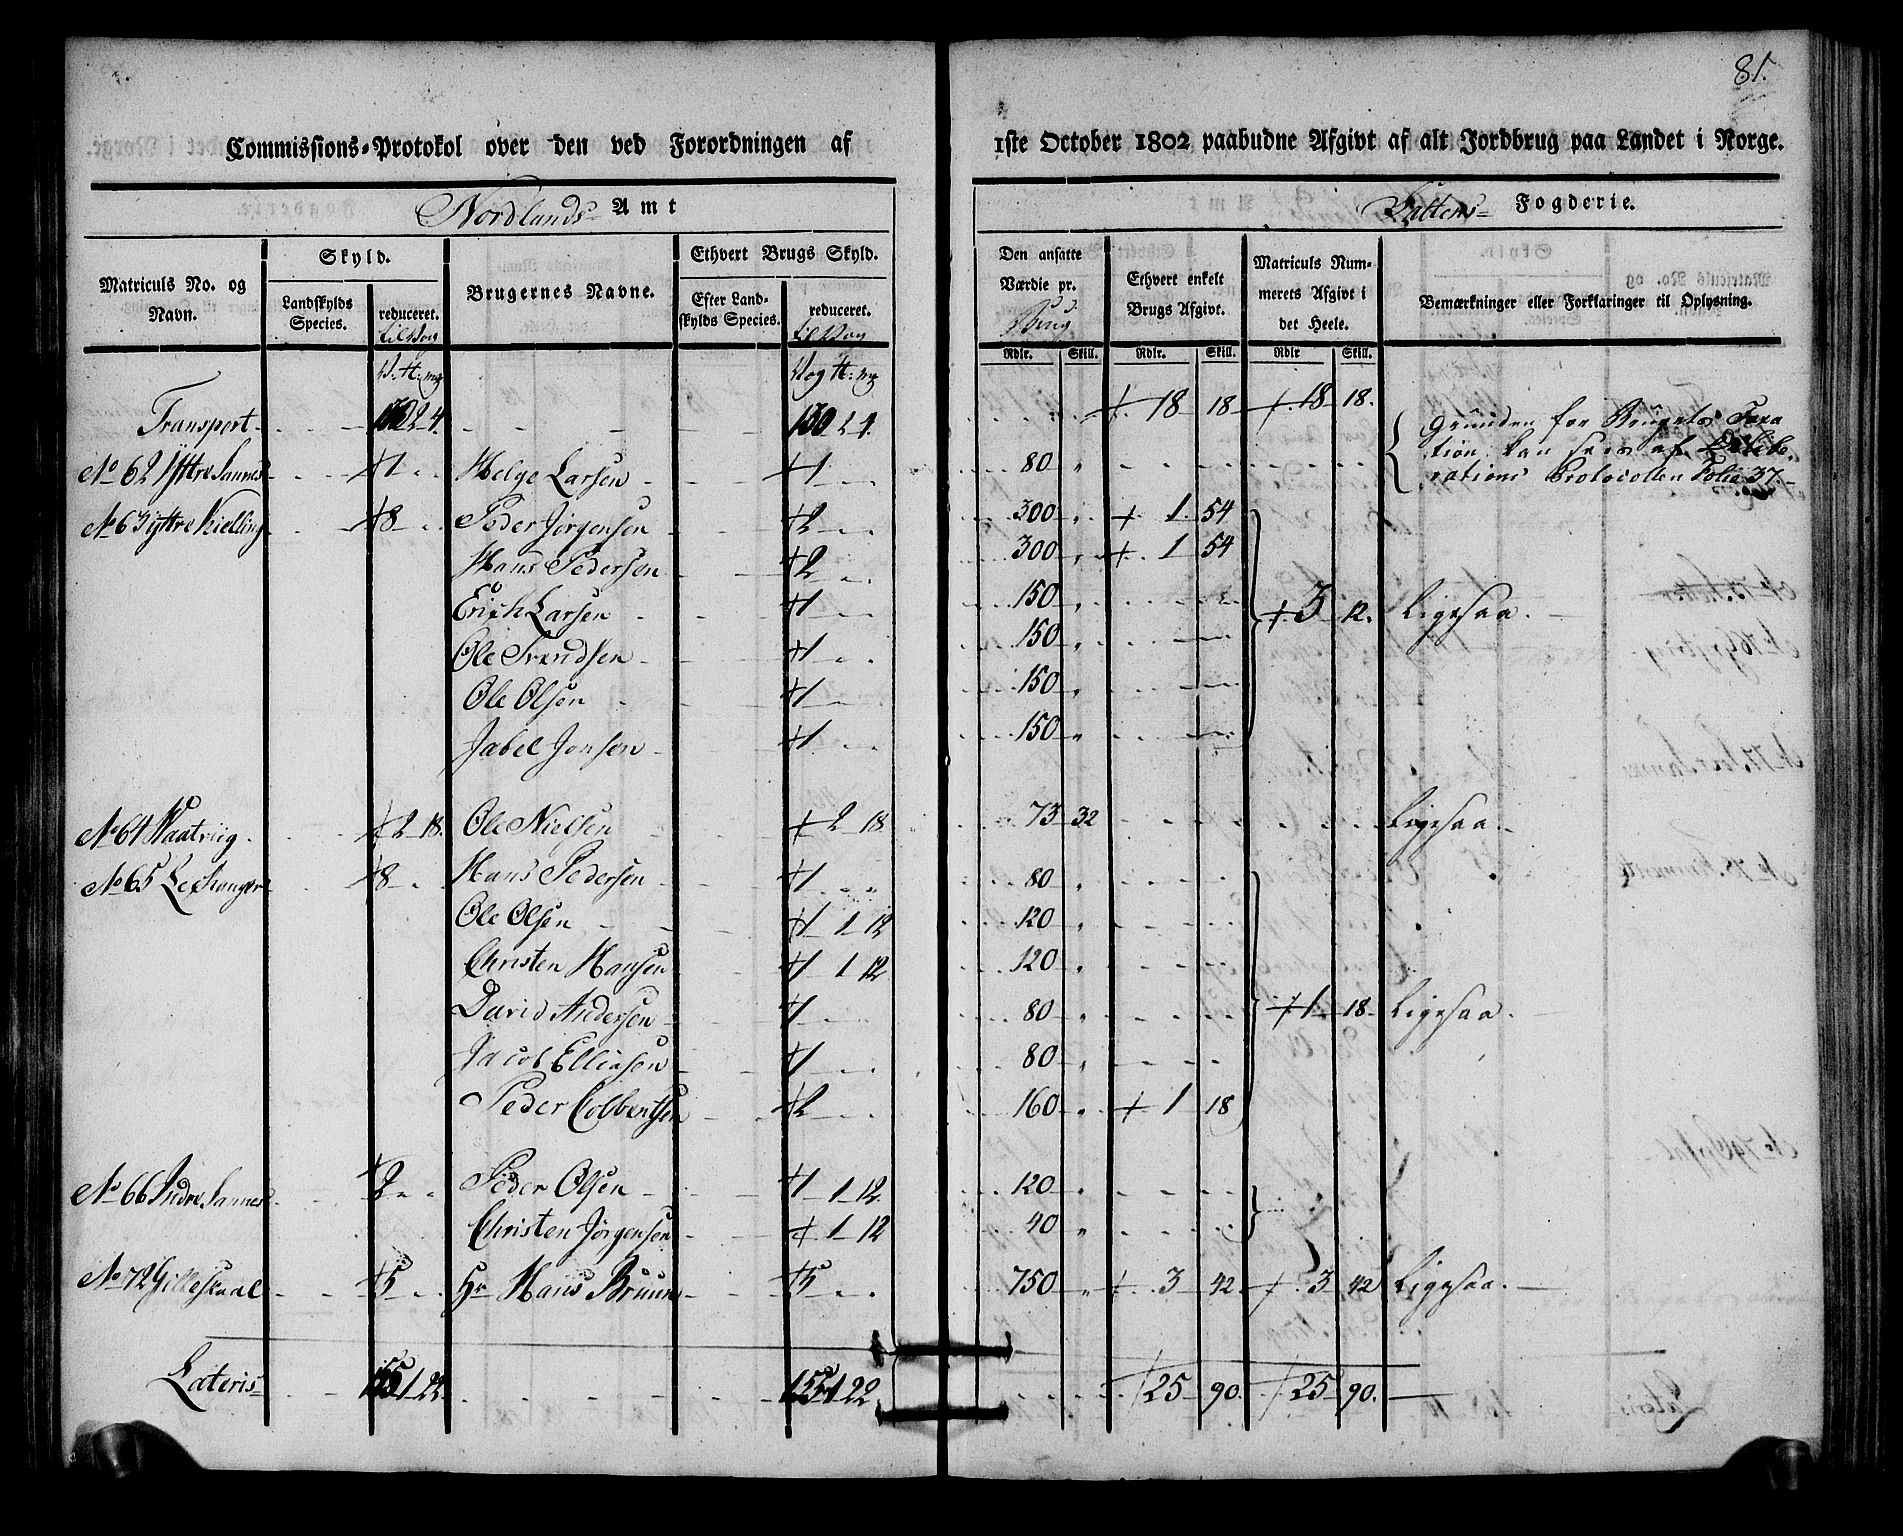 81.
Commissions-Protokol over den ved Forordningen af 1ste October 1802 paabudne Afgivt af alt Jordbrug paa Landet i Norge.
Nordlands Amt
Saltens Fogderie.
Matriculs No. og Navn.
Skyld.
Landskylds Species.
reduceret.
Brugernes Navne.
Ethvert Brugs Skyld.
Efter Landskylds Species.
reduceret.
Den ansatte Værdie pr.
Brug
Ethvert enkelt Brugs Afgivt.
Matriculs Nummerets Afgivt i det Heele.
Bemærkninger eller Forklaringer til Oplysning.
Rdlr. Skill. Rdlr. Skill. Rdlr Skill.
Transport 2 4. 150 2 4. 18 18 18 18.
Grunden for Brugets Taxa
tion kan sees af Delibe
rations Protocollen Folio 37.
No 62 Yttre Sannes 1 Helge Larsen 1 80
No 63 Yttre Kielling 8 Peder Jørgensen 2 300 1 54
Hans Pedersen 2 300 1 54
Erich Larsen 1 150 3 12. Ligesaa.
Ole Trendsen 1 150
Ole Olsen 1 150
Jabel Jonsen 1 150
No 64 Vaatviig 2 18. Ole Nielsen 2 18 73 32 Ligesaa.
No 65 Lexhanger 8 Hans Pedersen 1 80
Ole Olsen 1 1 12 120
Christen Hansen 1 1 12 120
David Andersen 1 80 1 18 Ligesaa.
Jacob Elliasen 1 80
Peder Colbentsen 2 160 1 18
No 66 Indre Sannes 2 Peder Olsen 1 1 12 120
Christen Jørgensen 1 12 40
No 72 Gilleskaal 5 Hr Hans Bruun 5 750 3 42 3 42 Ligesaa.
Lateris 155 1 22 155 1 22 25 90. 25 90.